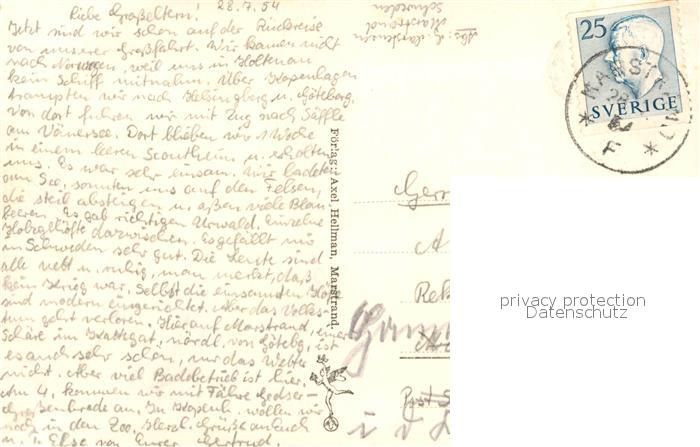 28.7.54
Liebe Großeltern!
Jetzt sind wir schon auf der Rückreise
von unserer Großfahrt. Wir kamen nicht
nach Norwegen, weil uns in Holtenau
kein Schiff mitnahm. Über Kopenhagen
trampten wir nach Helsingberg u. Göteborg.
Von dort fuhren wir mit Zug nach Säffle
am Vänersee. Dort blieben wir 1 Woche
in einem leeren Scoutheim u. erholten
uns. Es war sehr einsam. Wir badeten
am See, sonnten uns auf den Felsen,
die steil absteigen u. aßen viele Blau
beeren. Es gab richtigen Urwald. Einzelne
Holzgehöfte dazwischen. Es gefällt mir
in Schweden sehr gut. Die Leute sind
alle nett u. ruhig, man merkt, daß
kein Krieg war. Selbst die einsamsten Höfe
sind modern eingerichtet. Aber das Volks-
tum geht verloren. Hier auf Marstrand, einer
Schäre im Kattegat, nördl. von Göteborg, ist
es auch sehr schön, nur das Wetter
nicht. Aber viel Badebetrieb ist hier.
Am 4. kommen wir mit Fähre Gedser-
Großenbrode an. In Kopenh. wollen wir
noch in den Zoo. Herzl. Grüße auch
u. Else von Eurer Gertrud.
Marstrand
Schweden
Förlag: Axel Hellman, Marstrand.
25
SVERIGE
MARSTRAND
Post
privacy protection
Datenschutz